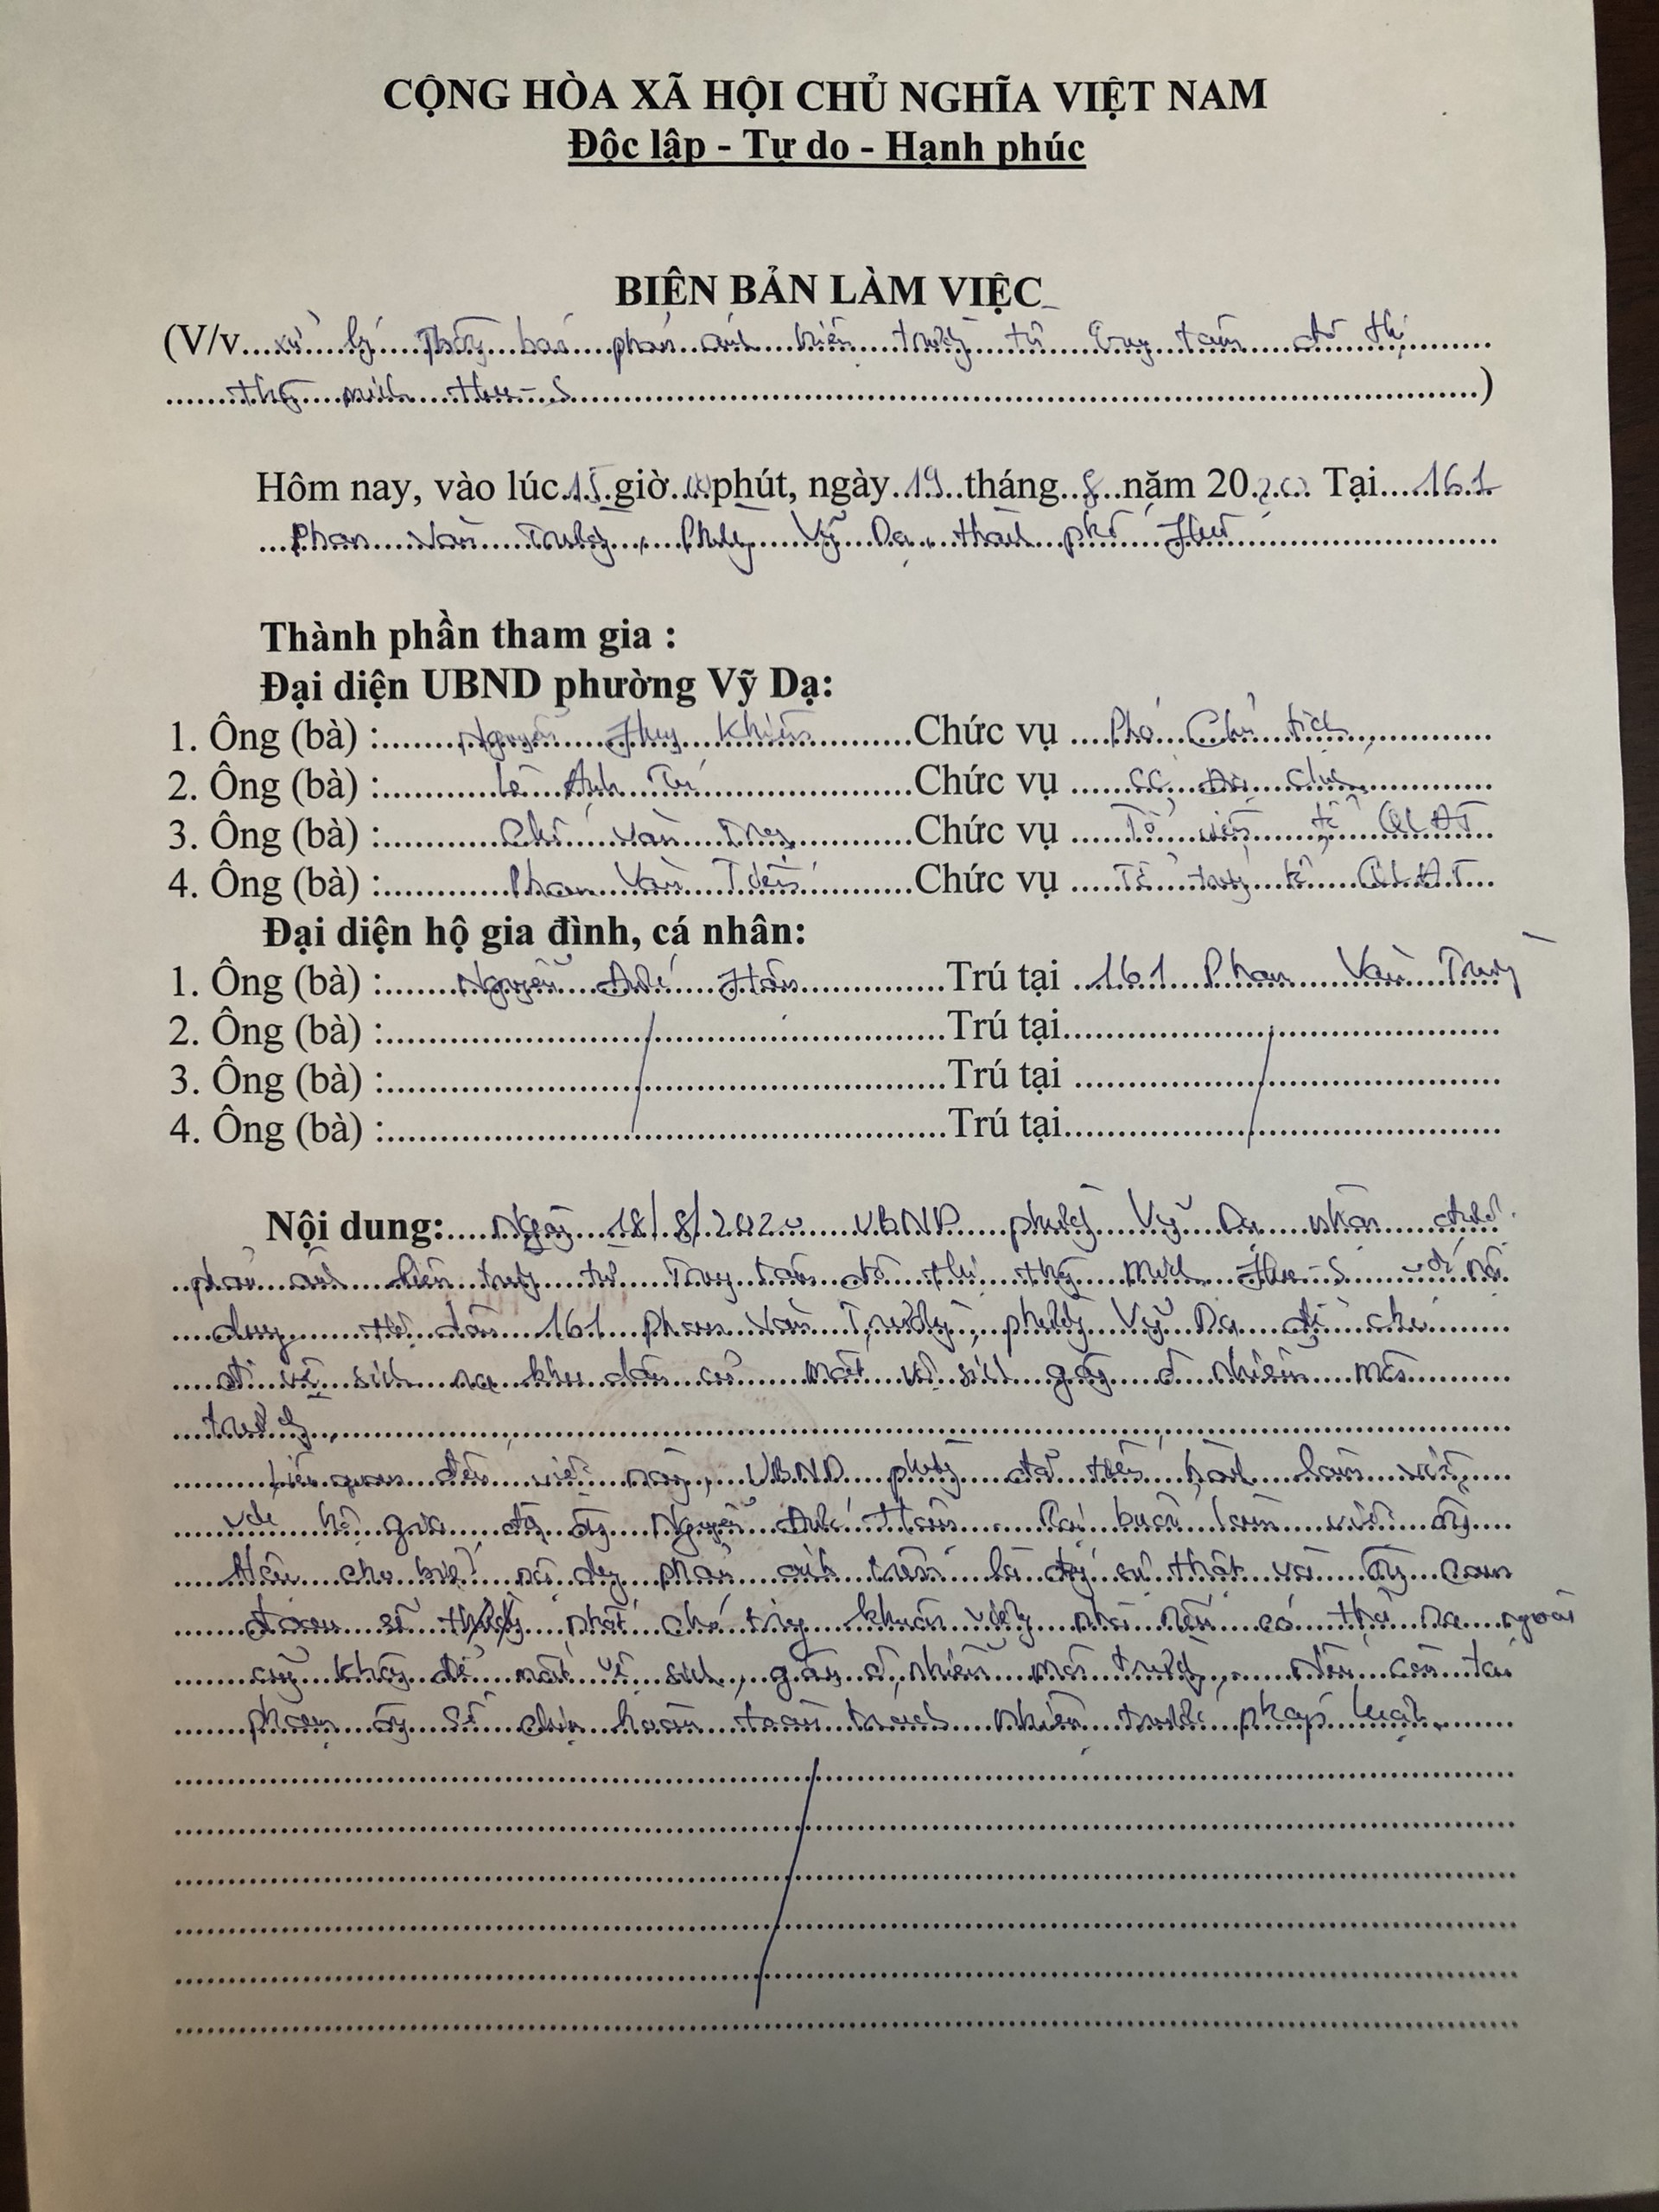 CỘNG HÒA XÃ HỘI CHỦ NGHĨA VIỆT NAM
Độc lập - Tự do - Hạnh phúc
BIÊN BẢN LÀM VIỆC
(V/v...xử lý thông báo phản ánh hiện trường từ trung tâm đô thị
thông minh Hue-S...)
Hôm nay, vào lúc 15 giờ 00 phút, ngày 19 tháng 8 năm 2020 Tại 161
Phan Văn Trường, phường Vỹ Dạ, thành phố Huế
Thành phần tham gia :
Đại diện UBND phường Vỹ Dạ:
1. Ông (bà) : Nguyễn Huy Khiêm Chức vụ Phó Chủ tịch
2. Ông (bà) : Lê Anh Tú Chức vụ CC Địa chính
3. Ông (bà) : Văn Chức vụ Tổ viên tổ QLĐT
4. Ông (bà) : Phan Văn Chức vụ Tổ trưởng tổ QLĐT
Đại diện hộ gia đình, cá nhân:
1. Ông (bà) : Nguyễn Đức Hân Trú tại 161 Phan Văn Trường
2. Ông (bà) : Trú tại
3. Ông (bà) : Trú tại
4. Ông (bà) : Trú tại
Nội dung: Ngày 18/8/2020 UBND phường Vỹ Dạ nhận được
phản ánh hiện trường từ Trung tâm đô thị thông minh Hue-S với nội
dung hộ dân 161 Phan Văn Trường, phường Vỹ Dạ để chó
đi vệ sinh ra khu dân cư mất vệ sinh gây ô nhiễm môi
trường.
Liên quan đến việc này, UBND phường đã tiến hành làm việc
với hộ gia đình ông Nguyễn Đức Hân. Tại buổi làm việc ông
Hân cho biết nội dung phản ánh trên là đúng sự thật và ông cam
đoan sẽ nhốt chó trong khuôn viên nhà nếu có thả ra ngoài
cũng không để mất vệ sinh, gây ô nhiễm môi trường, nếu còn tái
phạm ông sẽ chịu hoàn toàn trách nhiệm trước pháp luật.